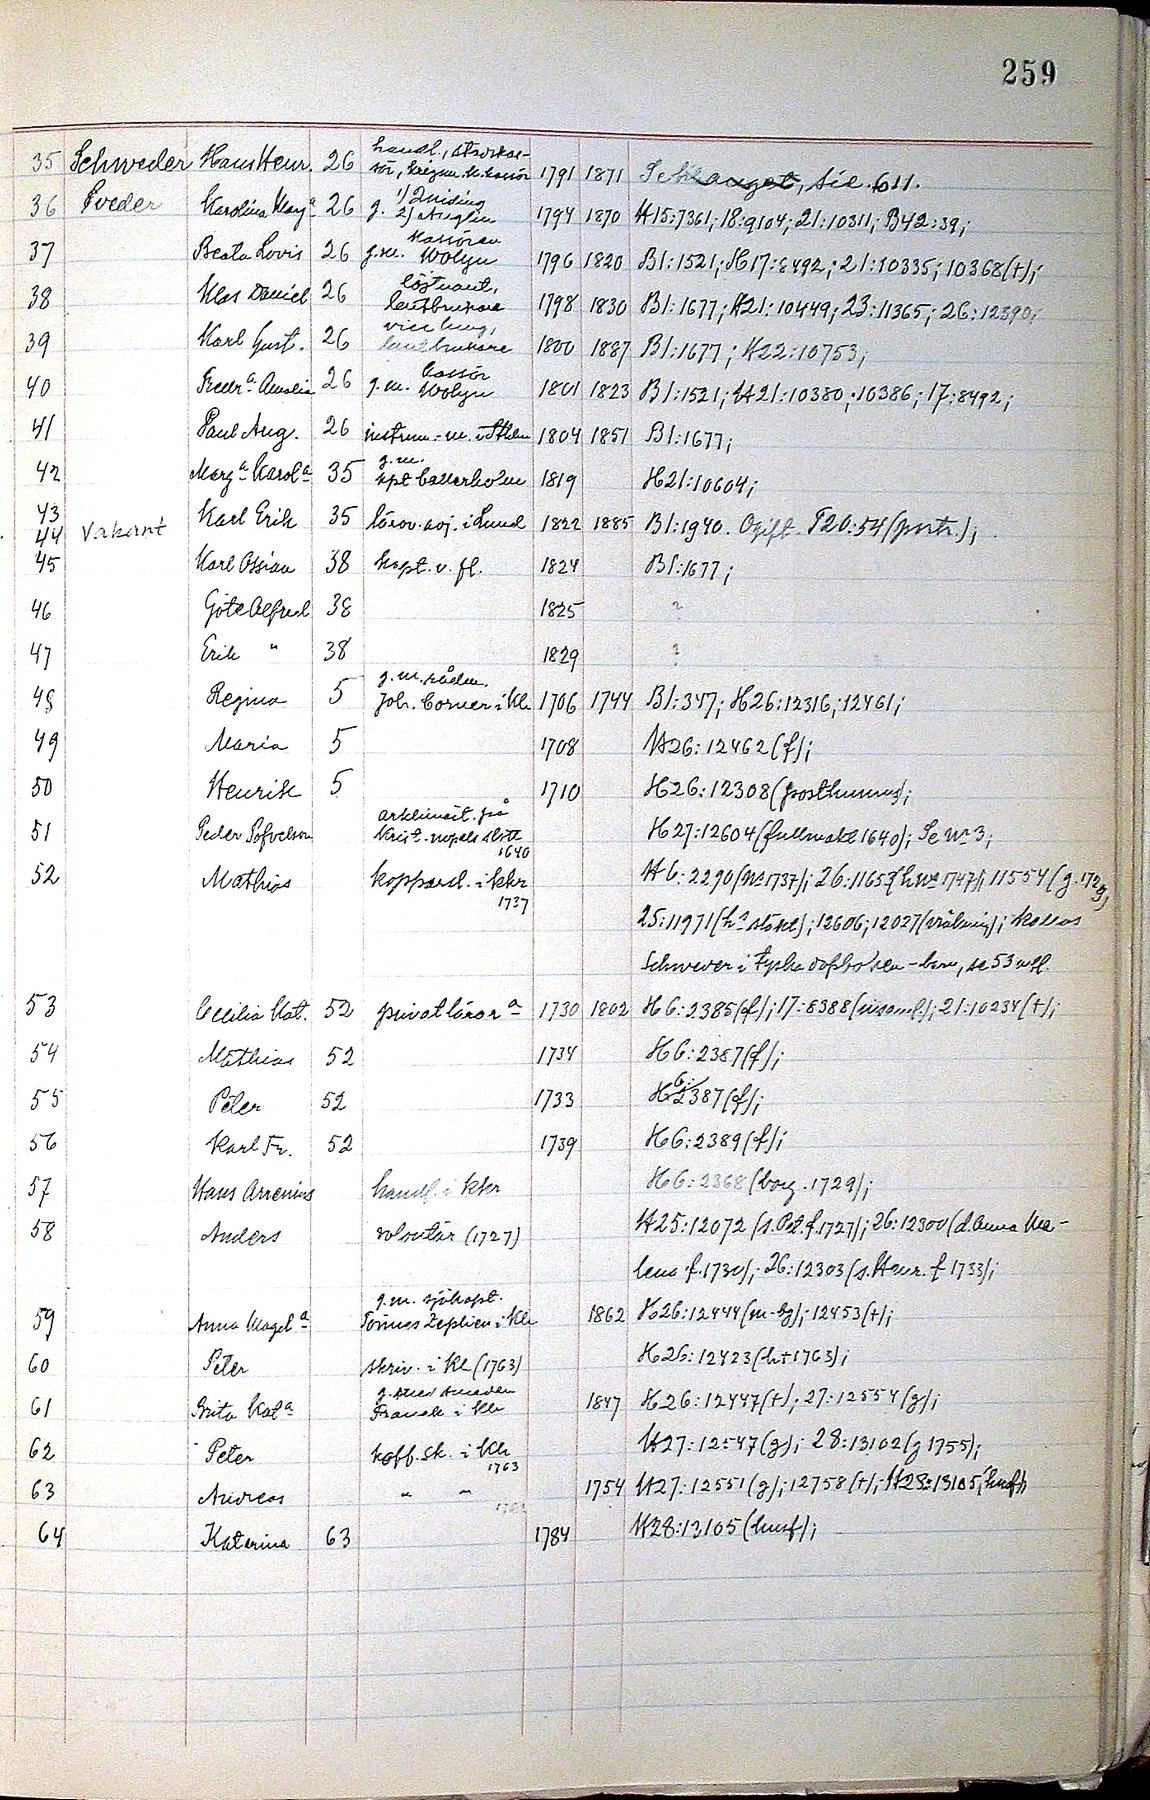 259
35 Schweder Hans Henr. 26 handl.,
sör, krigsm.k.kassör 1791 1871 sid. 611.
36 Sveder Karolina Marg.a 26 g. 1) Quiding 2) Anglin 1794 1870 H15:7361; 18:9104; 21:10311; B42:39;
37 Beata Lovis 26 g.m. kassören Wolyn 1796 1820 B1:1521; H17:8492; 21:10335; 10368(+);
38 Klas Daniel 26 löjtnant, lantbrukare 1798 1830 B1:1677; H21:10449; 23:11365; 26:12390;
39 Karl Gust. 26 vice lantbrukare 1800 1887 B1:1677; H22:10753;
40 Fredr.a Amalia 26 g.m. kassör Wolyn 1801 1823 B1:1521; H21:10380; 10386; 17:8492;
41 Paul Aug. 26 instrum.-m. i Sthlm 1804 1851 B1:1677;
42 Marg.a Karol.a 35 g.m. kpt Cederholm 1819 H21:10604;
43 Karl Erik 35 lärov. adj. i Lund 1822 1885 B1:1940. Ogift. T20:54 (portr.);
44 Vakant
45 Karl Ossian 38 kapt. v. fl. 1824 B1:1677;
46 Göte Alfred 38 1825 ?
47 Erik " 38 1829 ?
48 Regina 5 g.m. rådm. Joh. Corner i Kl 1706 1744 B1:347; H26:12316; 12461;
49 Maria 5 1708 H26:12462 (f);
50 Henrik 5 1710 H26:12308 (posthumus);
51 Peder arklimäst. på Krist-nopels slott 1640 H27:12604 (fullmakt 1640); Se Nr 3;
52 Mathias kopparsl. i Kkr 1737 H6:2290 (Nr 1737); 26:1165 1747); 11554 (g. 1729,
25:11971 (h:s); 12606; 12027; kallas
Schwever i Tyska dopbo'ken-barn, se 53 o ff.
53 Cecilia Kat. 52 privatlärar.a 1730 1802 H6:2385 (f); 17:8388; 21:10234 (+);
54 Mathias 52 1734 H6:2387 (f);
55 Peter 52 1733 H6:2387 (f);
56 Karl Fr. 52 1739 H6:2389 (f);
57 Hans Arrenius handl. i Kkr H6:2368 (borg. 1729);
58 Anders volontär (1727) H25:12072 (s. Pet. f. 1727); 26:12300 (d. Anna Ma-
lena f. 1730); 26:12303 (s. Henr. f 1733);
59 Anna Magd.a g.m. sjökapt. Tönnes Zephien i Kl 1862 H26:12444; 12453 (+);
60 Peter skriv. i Kl (1763) H26:12423 (h + 1763);
61 Brita Kat.a Franck i Kl 1847 H26:12447 (+); 27:12554 (g);
62 Peter koff. sk. i Kl 1763 H27:12547 (g); 28:13102 (g 1755);
63 Andreas " " 1754 H27:12551 (g); 12758 (+); H28:13105 (husf);
64 Katarina 63 1784 H28:13105 (husf);